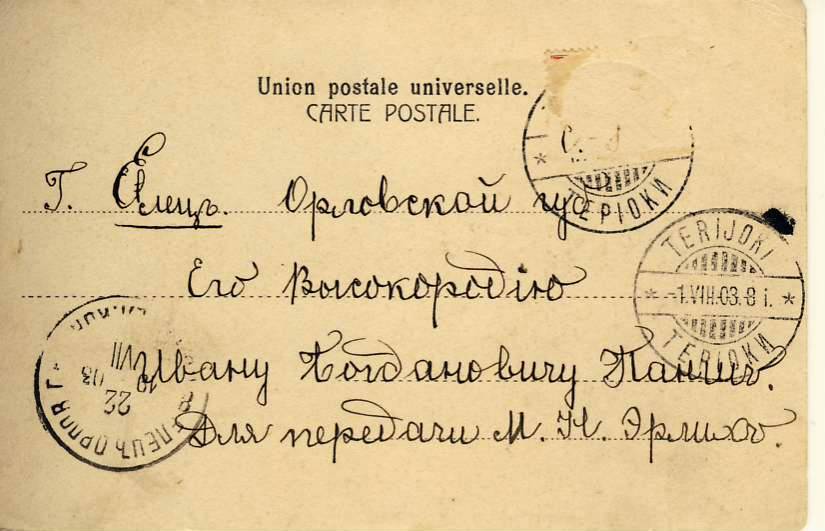 Union postale universelle.
CARTE POSTALE.
ТЕРІОКИ
Г. Елецъ. Орловской губ
TERIJOKI
-1.VIII.03.8 i.
ТЕРІОКИ
Его Высокородію
Ивану Богдановичу
Для передачи М. Н. Эрлихъ.
ЕЛЕЦЪ ОРЛОВ. Г.
22 VII 03